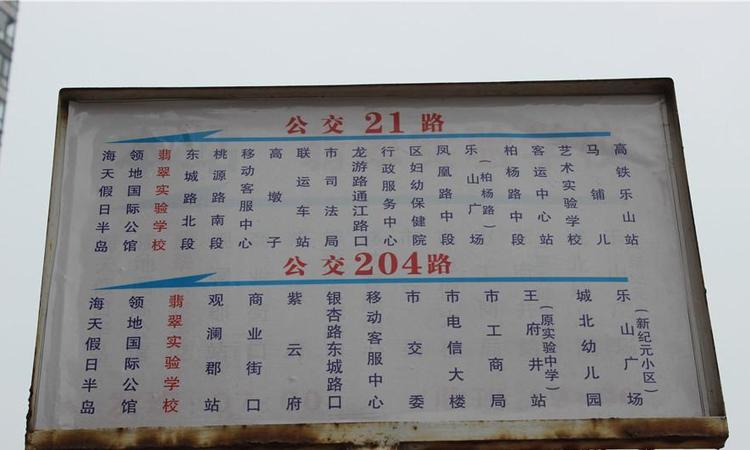 公交21路
海天假日半岛
领地国际公馆
翡翠实验学校
东城路北段
桃源路南段
移动客服中心
高墩子
联运车站
市司法局
龙游路通江路口
行政服务中心
区妇幼保健院
凤凰路中段
乐山广场
(柏杨路)
柏杨路中段
客运中心站
艺术实验学校
马铺儿
高铁乐山站
公交204路
海天假日半岛
领地国际公馆
翡翠实验学校
观澜郡站
商业街口
紫云府
银杏路东城路口
移动客服中心
市交委
市电信大楼
市工商局
王府井站
(原实验中学)
城北幼儿园
乐山广场
(新纪元小区)